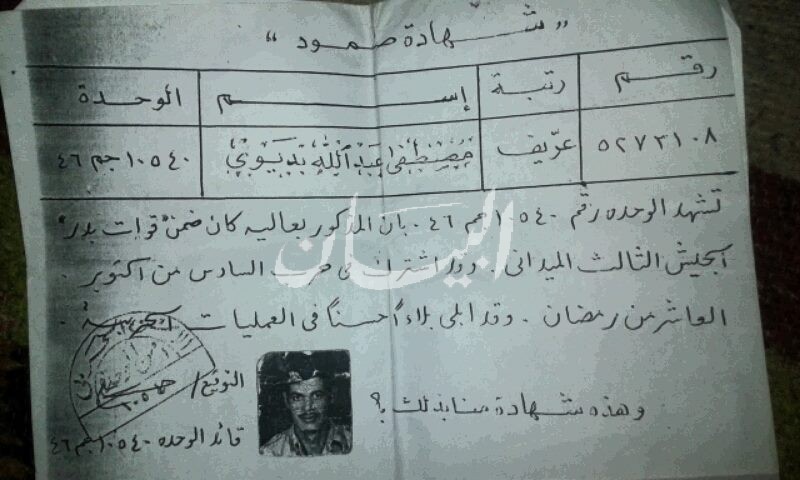 " شهادة صمود "
رقم رتبة إسم الوحدة
٥٢٧٣١٠٨ عريف مصطفى عبد الله بديوي ١٠٥٤٠ جم ٤٦
تشهد الوحده رقم ١٠٥٤٠ جم ٤٦ بان المذكور بعاليه كان ضمن "قوات بدر"
الجيش الثالث الميدانى . وقد اشترك فى حرب السادس من اكتوبر .
العاشر من رمضان . وقد ابلى بلاءاً حسناً فى العمليات الحربية .
وهذه شهادة منا بذلك ؟
التوقيع /
قائد الوحده ١٠٥٤٠ جم ٤٦
البيان